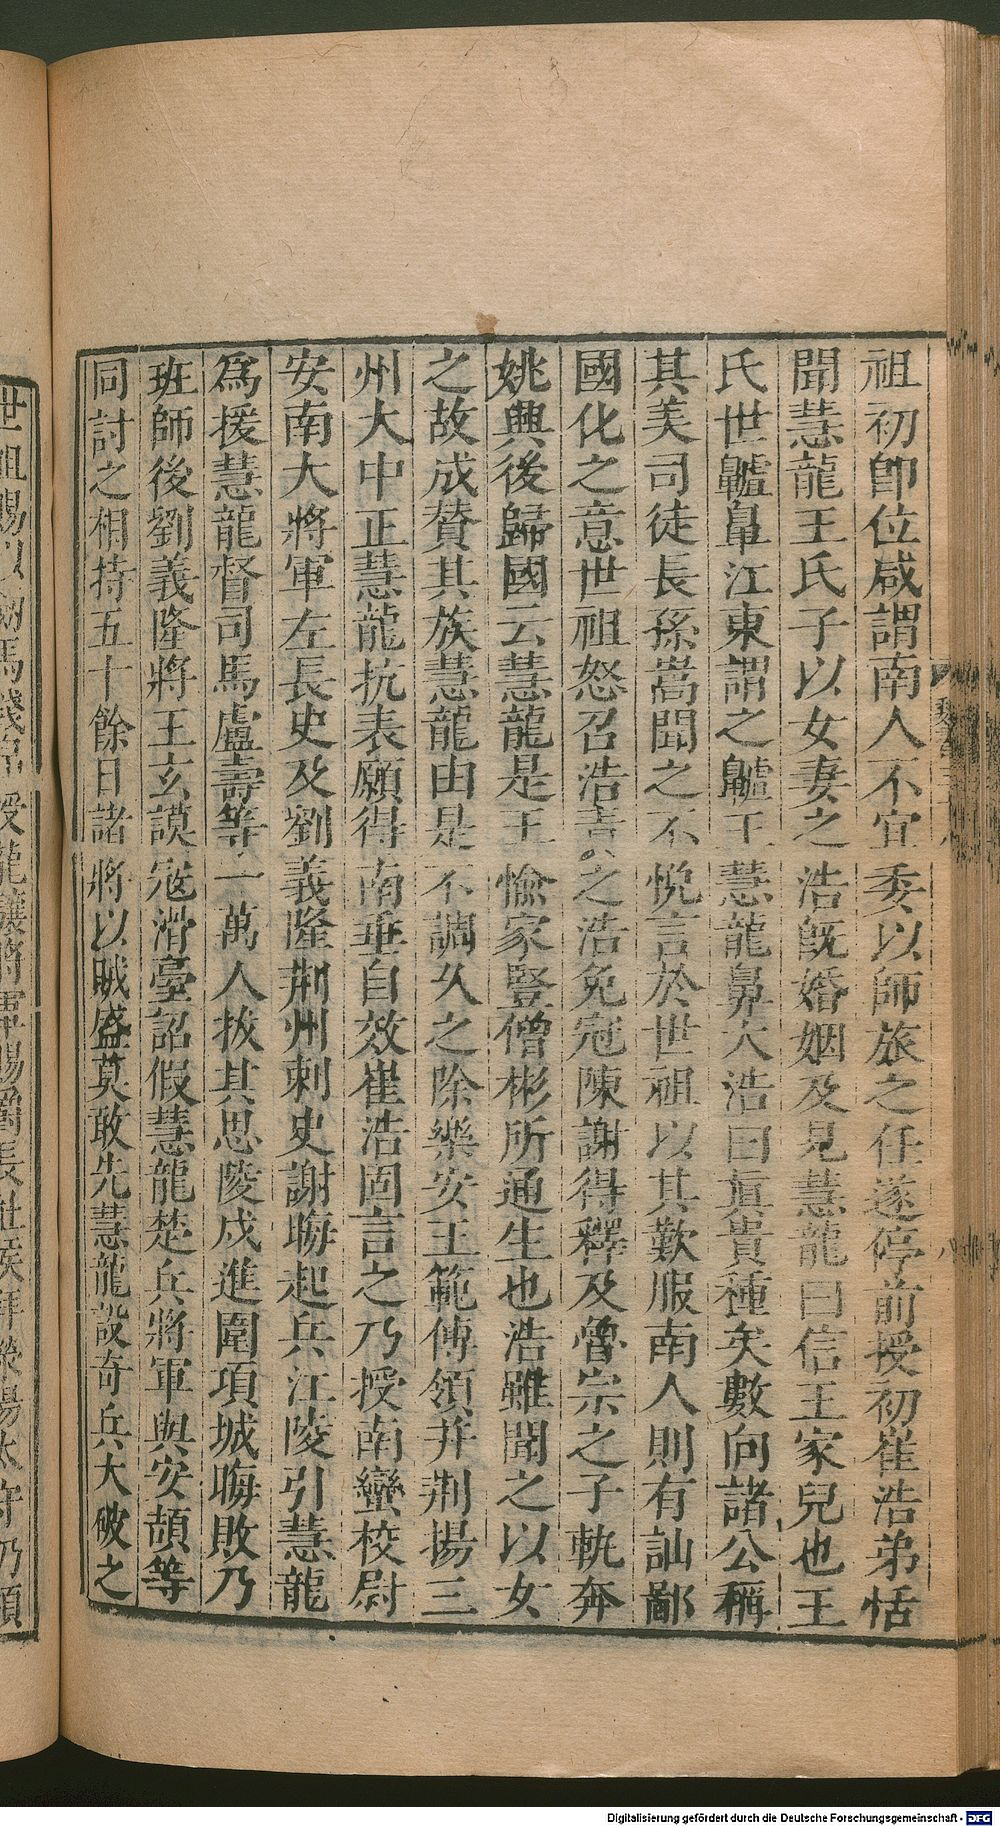 祖初即位咸謂南人不宜委以師旅之任遂停前授初崔浩弟恬
聞慧龍王氏子以女妻之浩旣婚姻及見慧龍曰信王家兒也王
氏世齇鼻江東謂之齇王慧龍鼻大浩曰眞貴種矣數向諸公稱
其美司徒長孫嵩聞之不悅言於世祖以其歎服南人則有訕鄙
國化之意世祖怒召浩責之浩免冠陳謝得釋及魯宗之子軌奔
姚興後歸國云慧龍是王愉家豎僧彬所通生也浩雖聞之以女
之故成贊其族慧龍由是不調久之除樂安王範傅領并荆揚三
州大中正慧龍抗表願得南垂自效崔浩固言之乃授南蠻校尉
安南大將軍左長史及劉義隆荆州刺史謝晦起兵江陵引慧龍
爲援慧龍督司馬盧壽等一萬人拔其思陵戍進圍項城晦敗乃
班師後劉義隆將王玄謨寇滑臺詔假慧龍楚兵將軍與安頡等
同討之相持五十餘日諸將以賊盛莫敢先慧龍設奇兵大破之
世祖賜以劒馬錢帛授龍驤將軍賜爵長社侯拜滎陽太守乃領
Digitalisierung gefördert durch die Deutsche Forschungsgemeinschaft - DFG